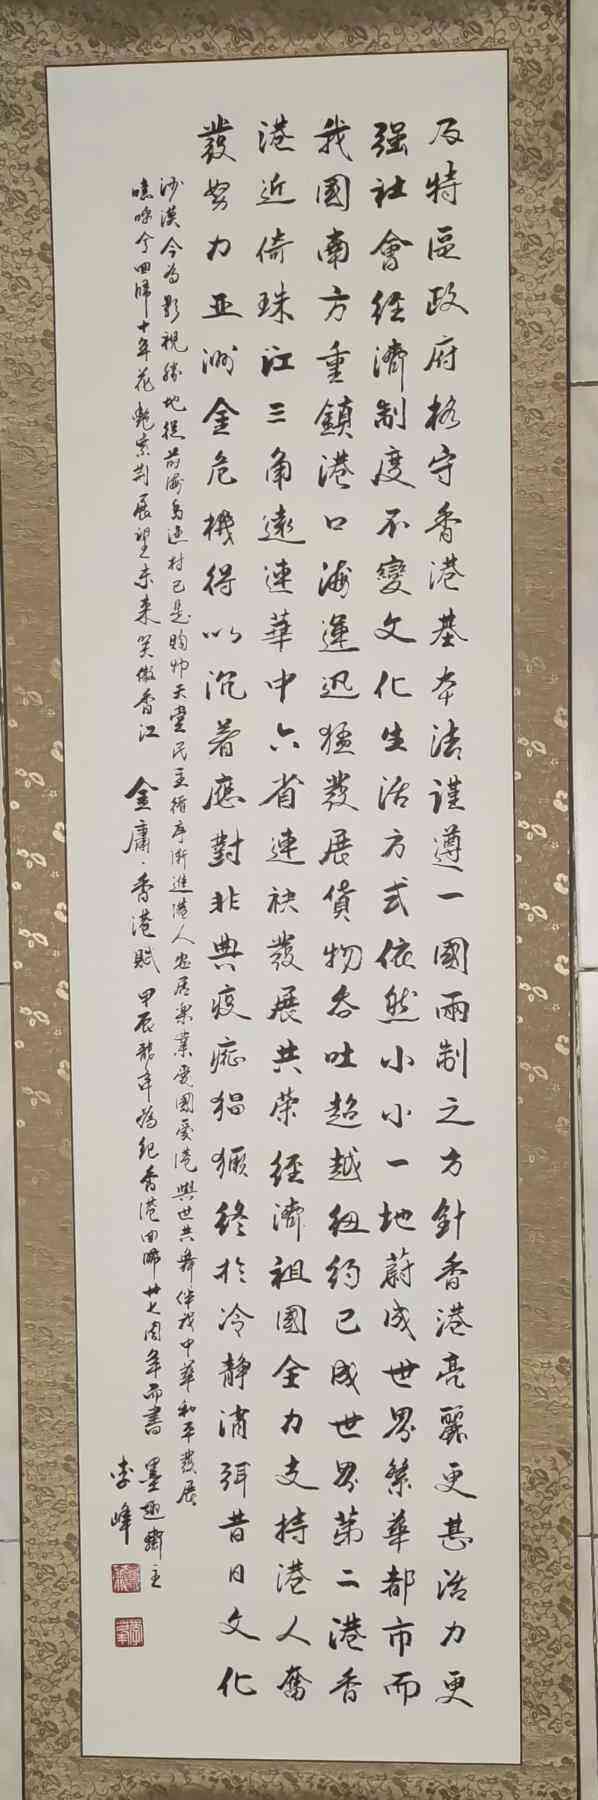 及特區政府恪守香港基本法謹遵一國兩制之方針香港亮麗更甚活力更
强社會經濟制度不變文化生活方式依然小小一地蔚成世界繁華都市而
我國南方重鎮港口海運迅猛發展貨物吞吐超越紐約已成世界第二港香
港近倚珠江三角遠連華中六省連袂發展共榮經濟祖國全力支持港人奮
發努力亚洲金危機得以沉着應對非典疫症猖獗終於冷靜消弭昔日文化
沙漠今為影視勝地從前海島漁村已是購物天堂民主循序漸進港人安居樂業愛國愛港與世共舞伴我中華和平發展
噫吁兮回歸十年花艷紫荆展望未来笑傲香江
金庸·香港賦 甲辰龍年為紀香港回歸廿七周年而書 墨趣齋主
李峰